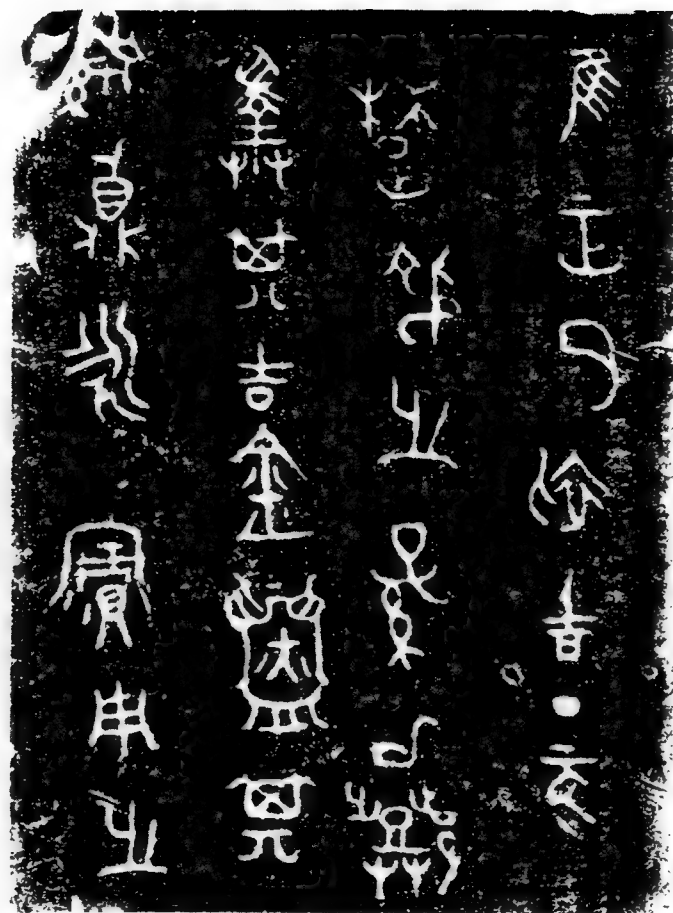 隹正月初吉丁亥
楚叔之孫以鄧
擇其吉金鑄其
繁鼎永寶用之